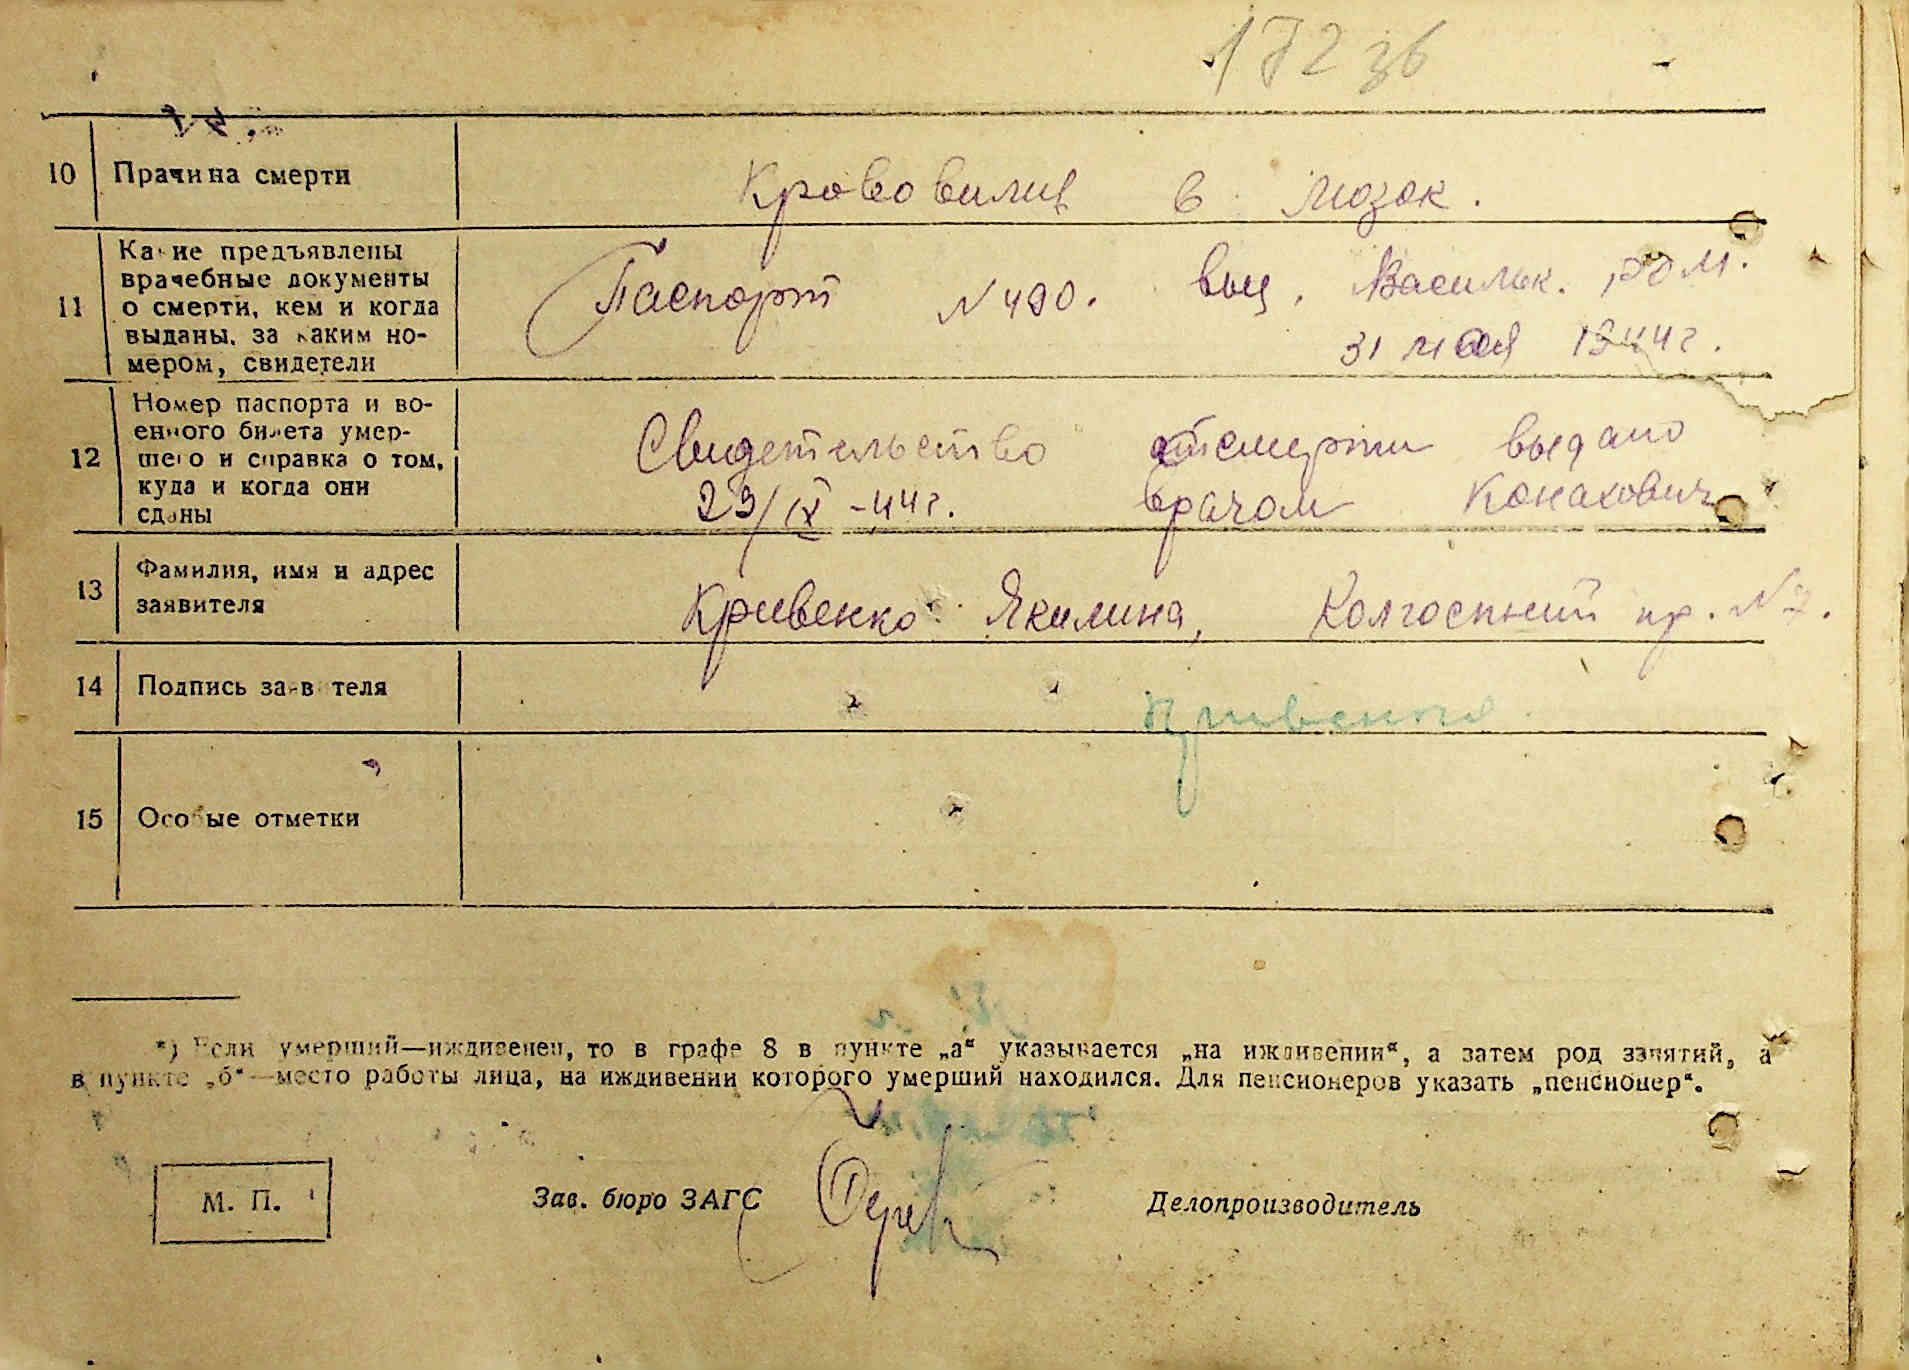 17236
10 Прачина смерти Крововилив в мозок.
11 Какие предъявлены
врачебные документы
о смерти, кем и когда
выданы, за каким но-
мером, свидетели
Паспорт N 490. выд. Васильк. РОМ.
31 мая 1944 г.
12 Номер паспорта и во-
енного билета умер-
шего и справка о том,
куда и когда они
сданы
Свидетельство смерти выдано
29/IX -44 г. врачом Конахович
13 Фамилия, имя и адрес
заявителя
Кривенко Якилина, Колгоспний пр. N 2.
14 Подпись заявителя Кривенко
15 Особые отметки
*) Если умерший—иждивенец, то в графе 8 в пункте „а“ указывается „на иждивении“, а затем род занятий, а
в пункте „б“—место работы лица, на иждивении которого умерший находился. Для пенсионеров указать „пенсионер“.
М. П. Зав. бюро ЗАГС Делопроизводитель